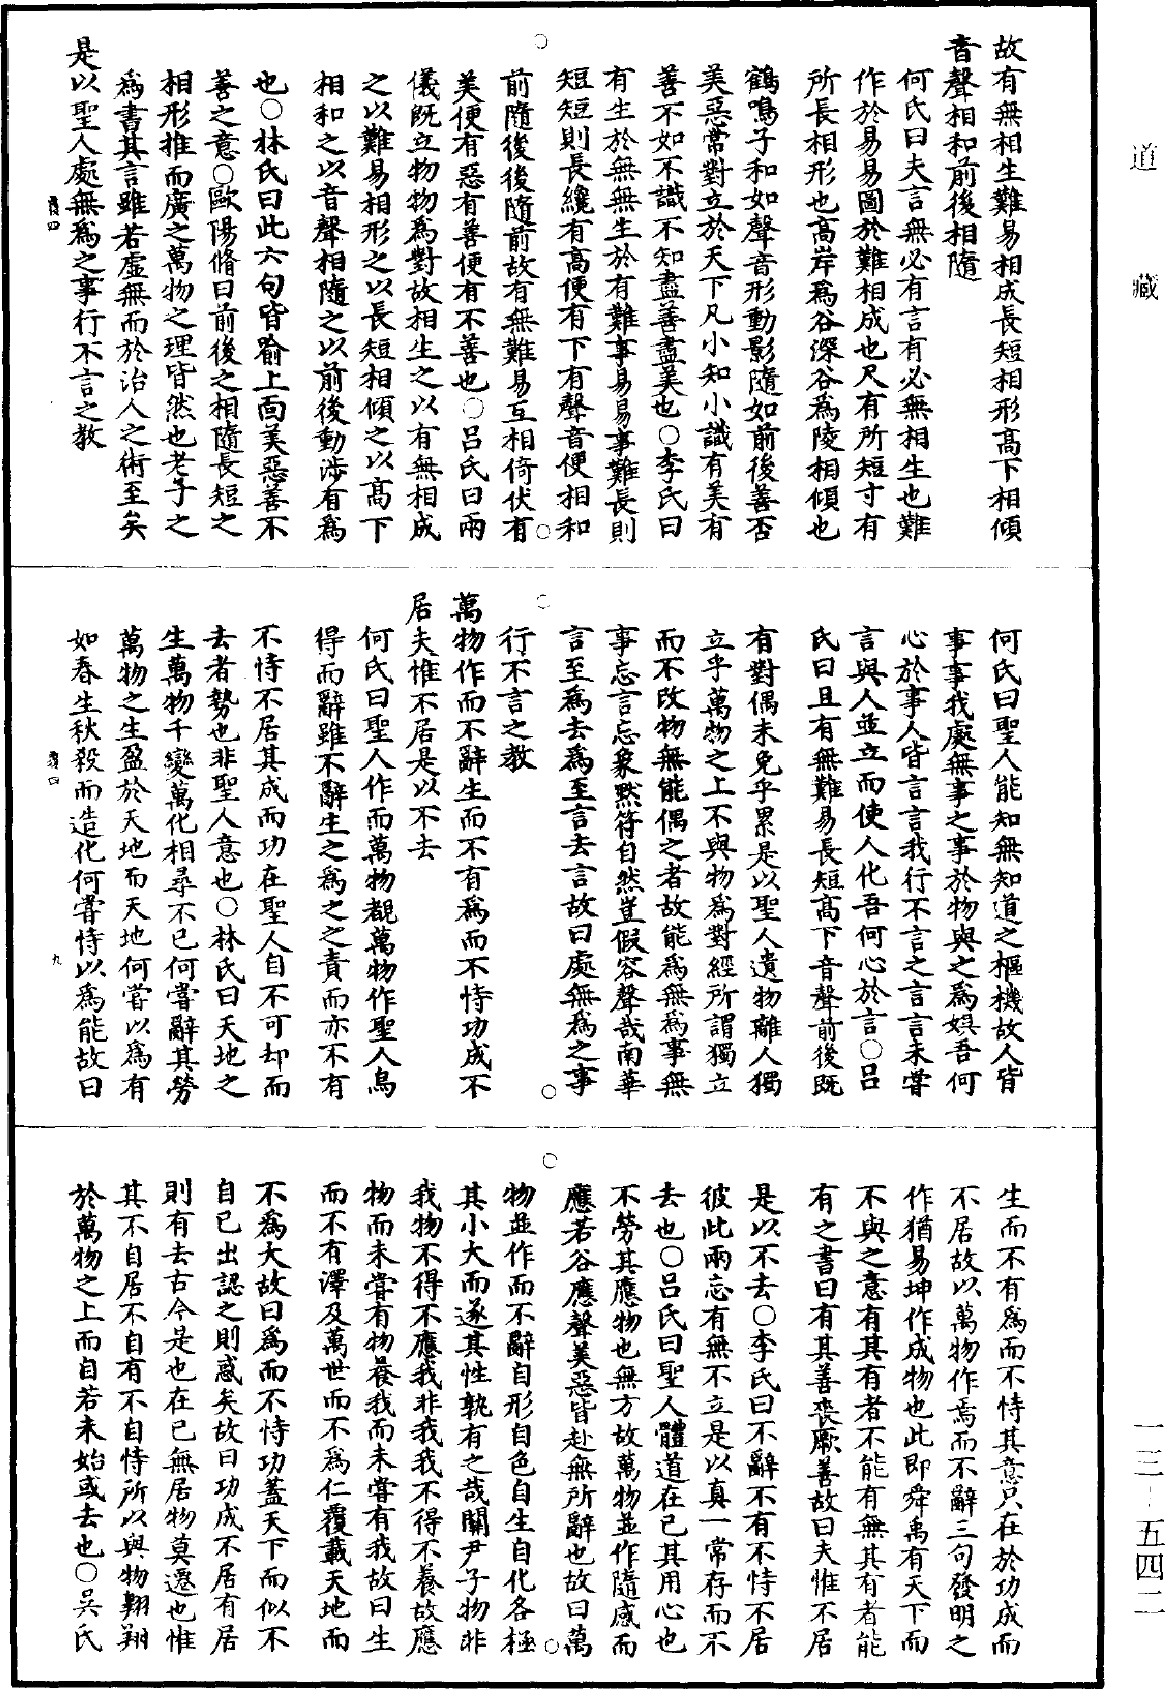 道藏
一三‐五四二
故有無相生難易相成長短相形高下相傾
音聲相和前後相隨
何氏曰夫言無必有言有必無相生也難
作於易易圖於難相成也尺有所短寸有
所長相形也高岸爲谷深谷爲陵相傾也
鶴鳴子和如聲音形動影隨如前後善否
美惡常對立於天下凡小知小識有美有
善不如不識不知盡善盡美也○李氏曰
有生於無無生於有難事易易事難長則
短短則長纔有高便有下有聲音便相和
前隨後後隨前故有無難易互相倚伏有
美便有惡有善便有不善也○呂氏曰兩
儀旣立物物爲對故相生之以有無相成
之以難易相形之以長短相傾之以高下
相和之以音聲相隨之以前後動涉有爲
也○林氏曰此六句皆喻上面美惡善不
善之意○歐陽脩曰前後之相隨長短之
相形推而廣之萬物之理皆然也老子之
爲書其言雖若虛無而於治人之術至矣
是以聖人處無爲之事行不言之教
何氏曰聖人能知無知道之樞機故人皆
事事我處無事之事於物與之爲娯吾何
心於事人皆言言我行不言之言言未嘗
言與人並立而使人化吾何心於言○呂
氏曰且有無難易長短高下音聲前後旣
有對偶未免乎累是以聖人遺物離人獨
立乎萬物之上不與物爲對經所謂獨立
而不改物無能偶之者故能爲無爲事無
事忘言忘象默符自然豈假容聲哉南華
言至爲去爲至言去言故曰處無爲之事
行不言之教
萬物作而不辭生而不有爲而不恃功成不
居夫惟不居是以不去
何氏曰聖人作而萬物覩萬物作聖人烏
得而辭雖不辭生之爲之之責而亦不有
不恃不居其成而功在聖人自不可却而
去者勢也非聖人意也○林氏曰天地之
生萬物千變萬化相尋不已何嘗辭其勞
萬物之生盈於天地而天地何嘗以爲有
如春生秋殺而造化何嘗恃以爲能故曰
生而不有爲而不恃其意只在於功成而
不居故以萬物作焉而不辭三句發明之
作猶易坤作成物也此即舜禹有天下而
不與之意有其有者不能有無其有者能
有之書曰有其善喪厥善故曰夫惟不居
是以不去○李氏曰不辭不有不恃不居
彼此兩忘有無不立是以真一常存而不
去也○呂氏曰聖人體道在己其用心也
不勞其應物也無方故萬物並作隨感而
應若谷應聲美惡皆赴無所辭也故曰萬
物並作而不辭自形自色自生自化各極
其小大而遂其性孰有之哉關尹子物非
我物不得不應我非我我不得不養故應
物而未嘗有物養我而未嘗有我故曰生
而不有澤及萬世而不爲仁覆載天地而
不爲大故曰爲而不恃功蓋天下而似不
自己出認之則惑矣故曰功成不居有居
則有去古今是也在己無居物莫遷也惟
其不自居不自有不自恃所以與物翱翔
於萬物之上而自若未始或去也○吳氏